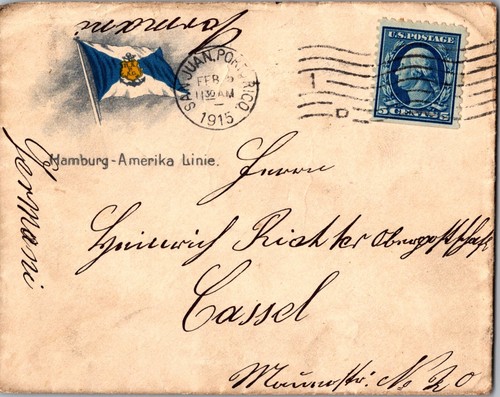 Germani
U.S. POSTAGE
5 CENTS 5
SAN JUAN, PORTO RICO.
FEB
11 30 AM
1915
1
D
Hamburg-Amerika Linie.
Germani
Herrn
Heinrich Richter
Cassel
Mauerstr: No 20